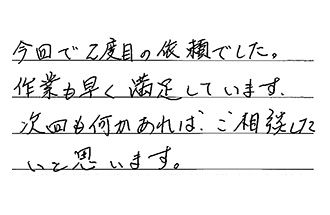 今回で2度目の依頼でした。
作業も早く満足しています。
次回も何かあれば、ご相談した
いと思います。